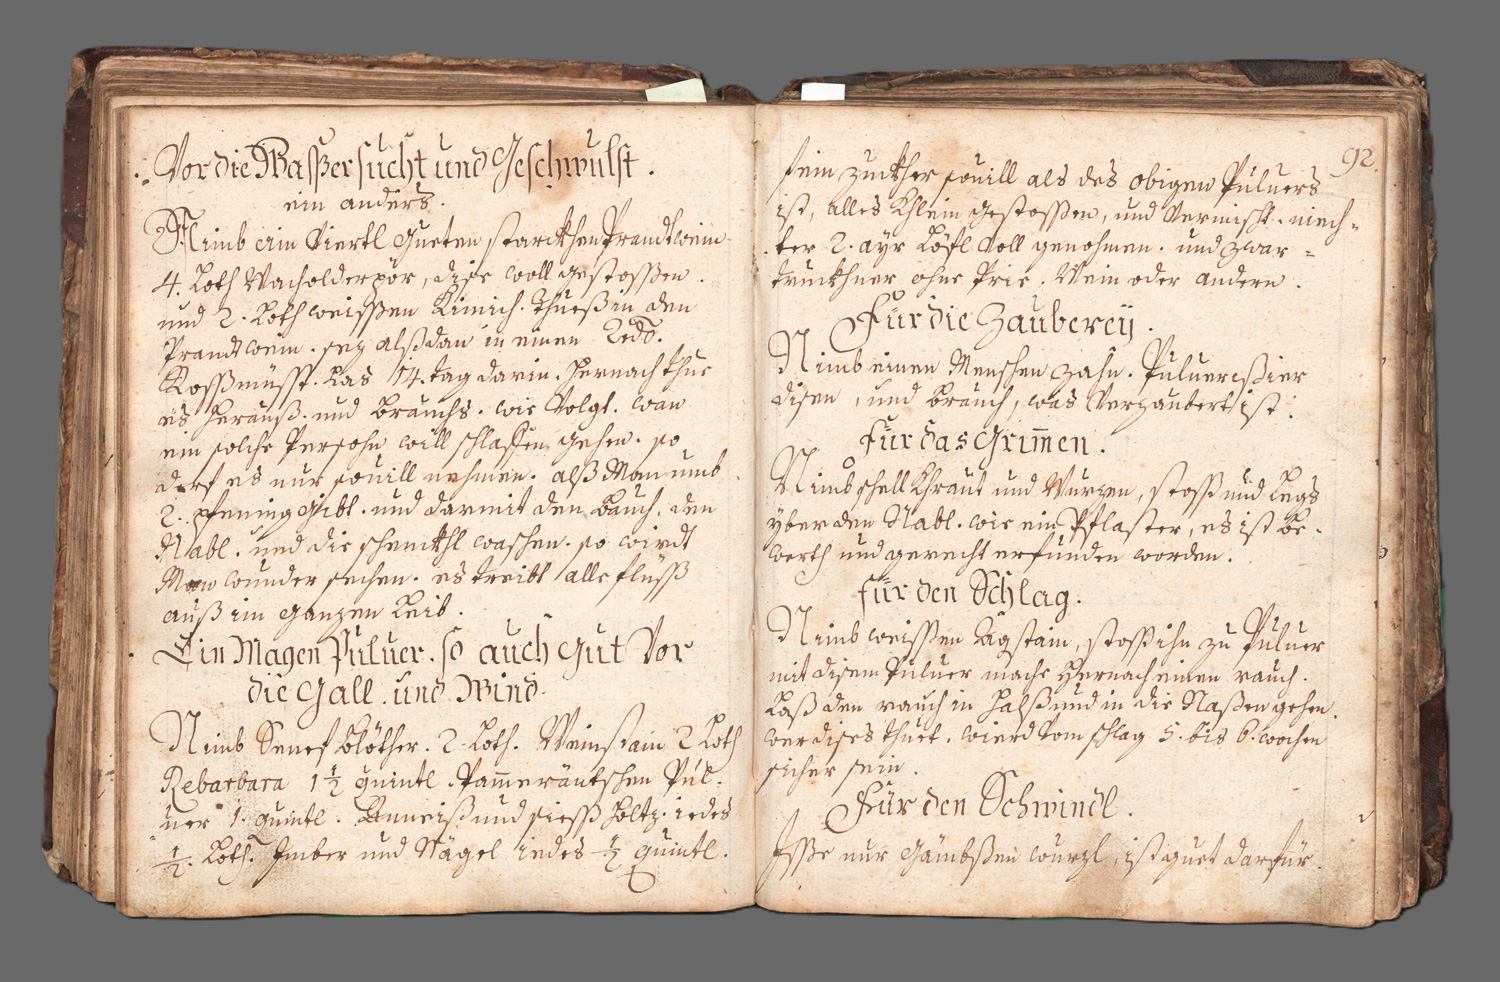 Vor die Wasßersucht und Geschwulst.
ein anders.
Nimb ein Viertl gueten starckhen Prandtwein
4. Loth Wacholderpör, dise woll gestossen.
und 2. Loth weissen Kimich. thues in den
Prandtwein. sez alßdan in einen
Rossmüsst. Las 14. tag darin. Hernach thue
es herauß. und brauchs. wie Volgt. wan
ein solche Persohn will schlaffen gehen. so
derf es nur souill nehmen. alß Man umb
2. pfening gibt. und darmit den Bauch. den
Nabl. und die schenckhl waschen. so wirdt
Man wunder sechen. es treibt alle flüss
auß im ganzen Leib.
Ein Magen Puluer. so auch gut Vor
die Gall. und Wind.
Nimb Senef blöther. 2. Loth. Weinstain 2 Loth
Rebarbara 1 1/2 quintl. Pam̄eräntschen Pul-
uer 1. quintl. Enneiß und siessholtz. iedes
1/2. Loth. Imber und Nägel iedes 1/2 quintl.
92.
fein zuckher souill als des obigen Puluers
ist, alles khlein gestossen, und Vermischt. niech-
ter 2. ayr Löfl Voll genohmen. und zwar =
truckhner ohne Prie. Wein oder andern.
Für die Zauberey.
Nimb einen Menschen zahn. Puluerissier
disen, und brauch, was Verzaubert ist.
für das Grim̄en.
Nimb schell khraut und Wurzen, stoss und Legs
yber den Nabl. wie ein Pflaster, es ist be-
werth und gerecht erfunden worden.
für den Schlag.
Nimb weissen Agstain, stoss ihn zu Puluer
mit disem Puluer mache Hernach einen rauch.
Laß den rauch in Halß und in die Naßen gehen.
wer dises thuet. wierd Vom schlag 5. bis 6. wochen
sicher sein.
Für den Schwindl.
Isse nur Gämbsen wurzl, ist guet darfür.